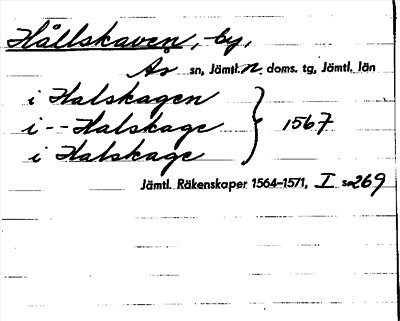 Hållskaven, by,
As sn, Jämtl. n. doms. tg, Jämtl. län
i Halskagen
i -- Halskage } 1567
i Halskage
Jämtl. Räkenskaper 1564-1571, I s. 269